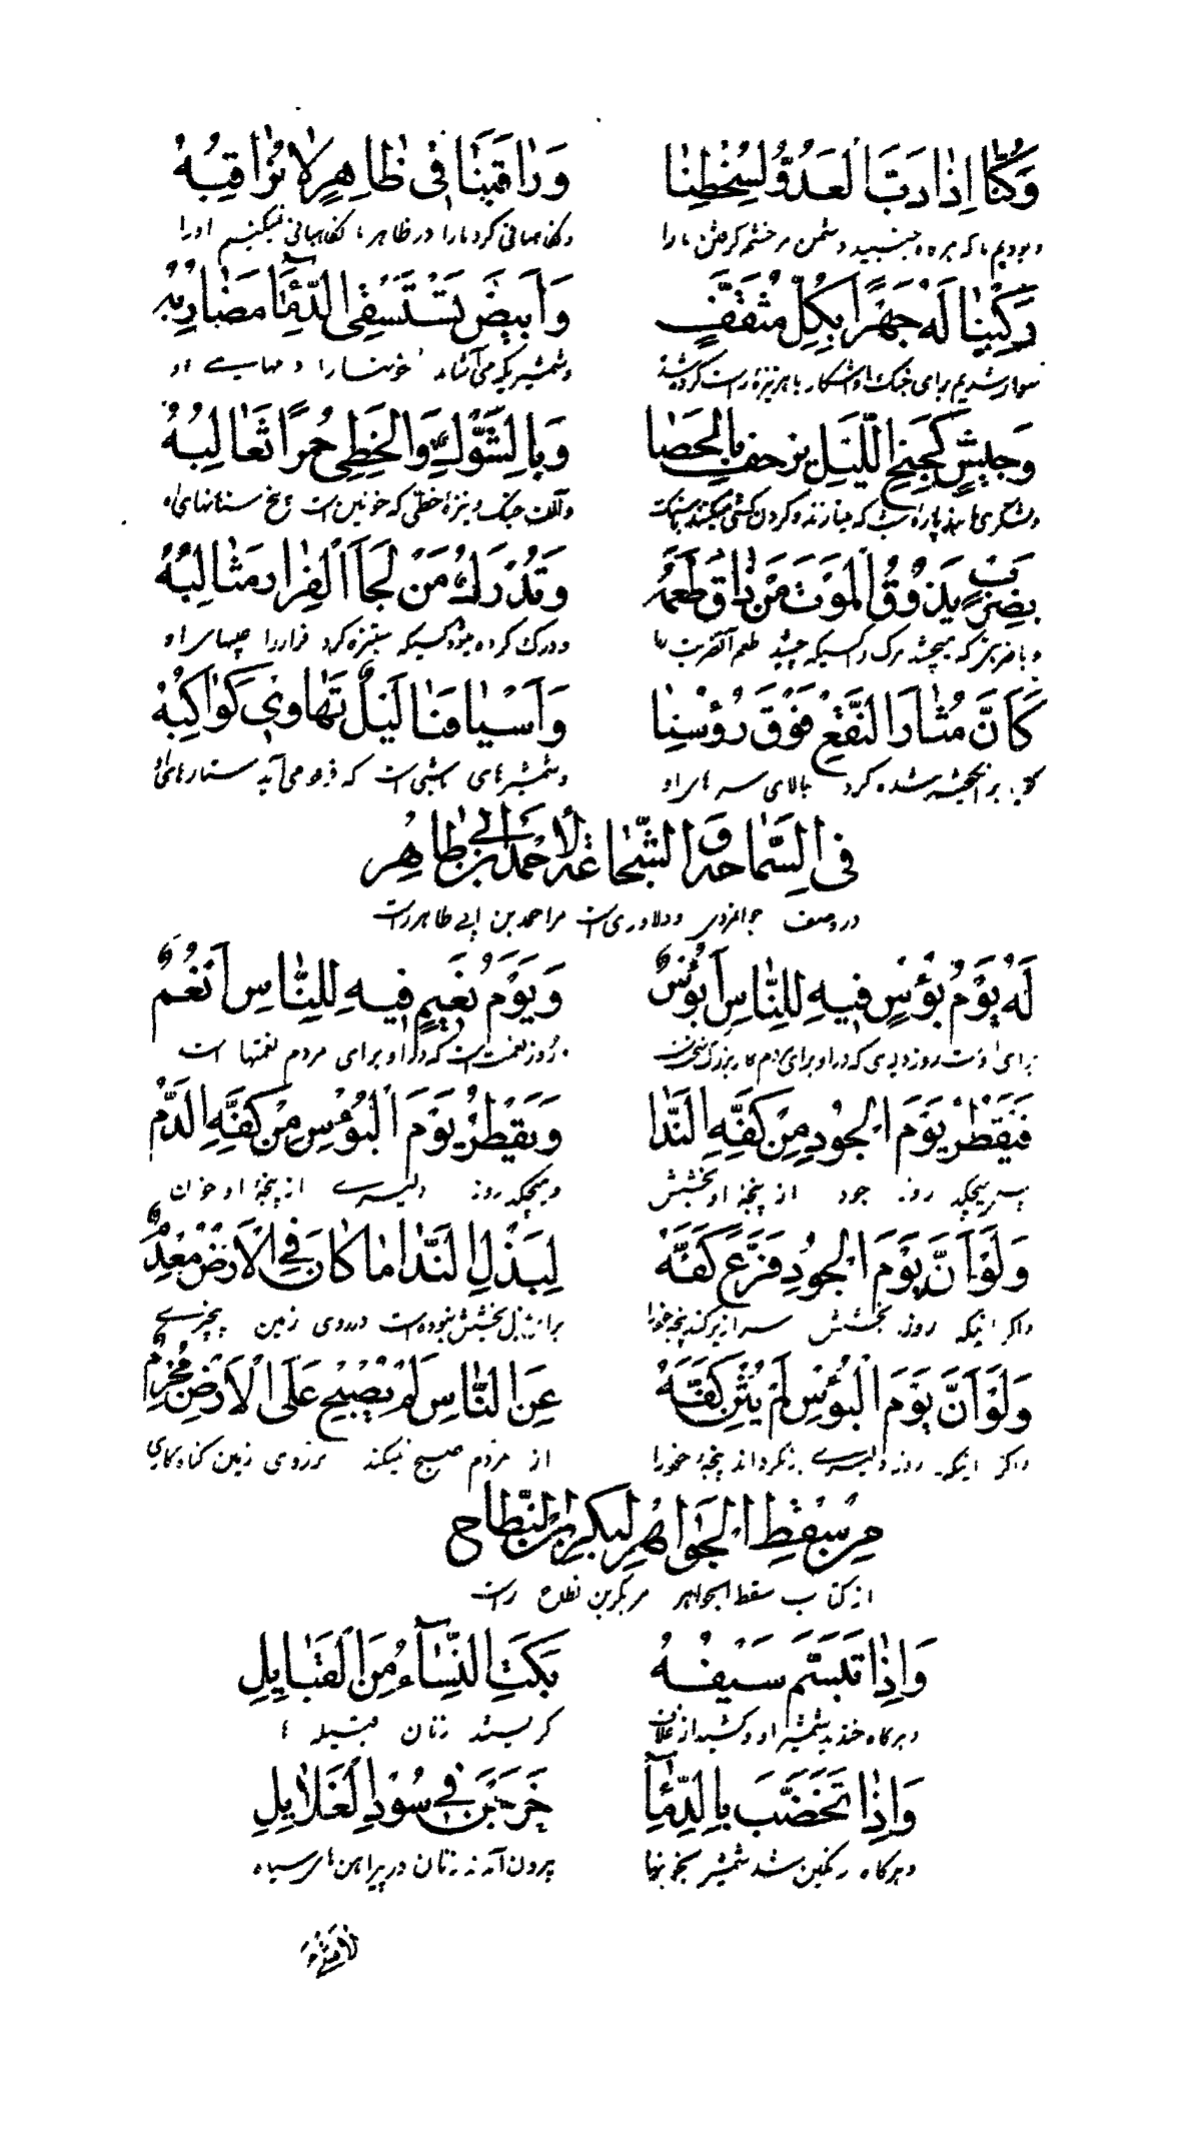 وَكُنَّا اِذَا دَبَّ الْعَدُوُّ لِسُخْطِنَا وَرَاقَبَنَا فِي ظَاهِرٍ لَا نُرَاقِبُهُ
و بودیم ما که هرگاه جنبید دشمن بر خشم گرفتن ما را و نگاهبانی کرد ما را در ظاهر ما نگاهبانی نمیکنیم او را
رَكِبْنَا لَهُ جَهْرًا بِكُلِّ مُثَقَّفٍ وَاَبْيَضَ تَسْتَسْقِى الدِّمَآءَ مَضَارِبُهُ
سوار شدیم برای جنک او اشکار با هر نیزه راست کرده شده و شمشیریکه می‌آشامد خونها را دمهای او
وَجَيْشٍ كَجِنْحِ اللَّيْلِ يَزْحَفُ بِالْحَصَا وَبِالشَّوْكِ وَالْخَطِّي حُمْرًا ثَعَالِبُهُ
و لشگری مانند پاره شب که و آلات جنک و نیزهٔ خطی که خونین است سنانهای او
بِضَرْبٍ يَذُوقُ الْمَوْتَ مَنْ ذَاقَ طَعْمَهُ وَتُدْرِكُ مَنْ لَجَّا الْفِرَارُ مَثَالِبُهُ
و با ضربتی که میچشد مرک را کسیکه چشید طعم آنضربت را و درک کرده میشود کسیکه ستیزه کرد فرار را عیبهای او
كَاَنَّ مُثَارَ النَّقْعِ فَوْقَ رُؤُسِنَا وَاَسْيَافَنَا لَيْلٌ تَهَاوٰى كَوَاكِبُهُ
کویا برانگیخته شده کرد بالای سرهای او و شمشیرهای ما شبی است که فرو می‌آید ستارهای او
فِى السَّمَاحَةِ وَ الشَّجَاعَةِ لِاَحْمَدَ بْنِ اَبِي طَاهِرٍ
در وصف جوانمردی و دلاوری است مر احمد بن ابی طاهر راست
لَهُ يَوْمُ بُؤْسٍ فِيهِ لِلنَّاسِ اَبْؤُسٌ وَيَوْمُ نَعِيمٍ فِيهِ لِلنَّاسِ اَنْعُمٌ
برای اوست روز بدی که در او برای مردم و روز نعمت است که در او برای مردم نعمتها است
فَيَقْطُرُ يَوْمَ الْجُودِ مِنْ كَفِّهِ النَّدَا وَيَقْطُرُ يَوْمَ الْبُؤْسِ مِنْ كَفِّهِ الدَّمُ
پس میچکد روز جود از پنجهٔ او بخشش و میچکد روز دلیری از پنجهٔ او خون
وَلَوْ اَنَّ يَوْمَ الْجُودِ فَرَّغَ كَفَّهُ لِبَذْلِ النَّدَا مَا كَانَ فِي الْاَرْضِ مُعْدِمٌ
و اکر اینکه روز بخشش سرازیر کند پنجه خود را برای بذل بخشش نبوده است در روی زمین بیچیزی
وَلَوْ اَنَّ يَوْمَ الْبُؤْسِ لَمْ يَثْنِ كَفَّهُ عَنِ النَّاسِ لَمْ يُصْبِحْ عَلَى الْاَرْضِ مُجْرِمٌ
و اکر اینکه روز دلیری برنگرداند پنجهٔ خود را از مردم صبح نمیکند بر روی زمین کناه‌کاری
مِنْ سِقْطِ الْجَوَاهِرِ لِبَكْرِ بْنِ النَّطَّاحِ
از کتاب سقط الجواهر مر بکر بن نطاح راست
وَاِذَا تَبَسَّمَ سَيْفُهُ بَكَتِ النِّسَآءُ مِنَ الْقَبَايِلِ
و هرکاه خندید شمشیر او و کشید از غلاف کریستند زنان قبیله ها
وَاِذَا تَخَضَّبَ بِالدِّمَآءِ خَرَجْنَ فِي سُودِ الْغَلَايِلِ
و هرکاه رنگین شد شمشیر بخونها بیرون آمدند زنان در پیراهن های سیاه